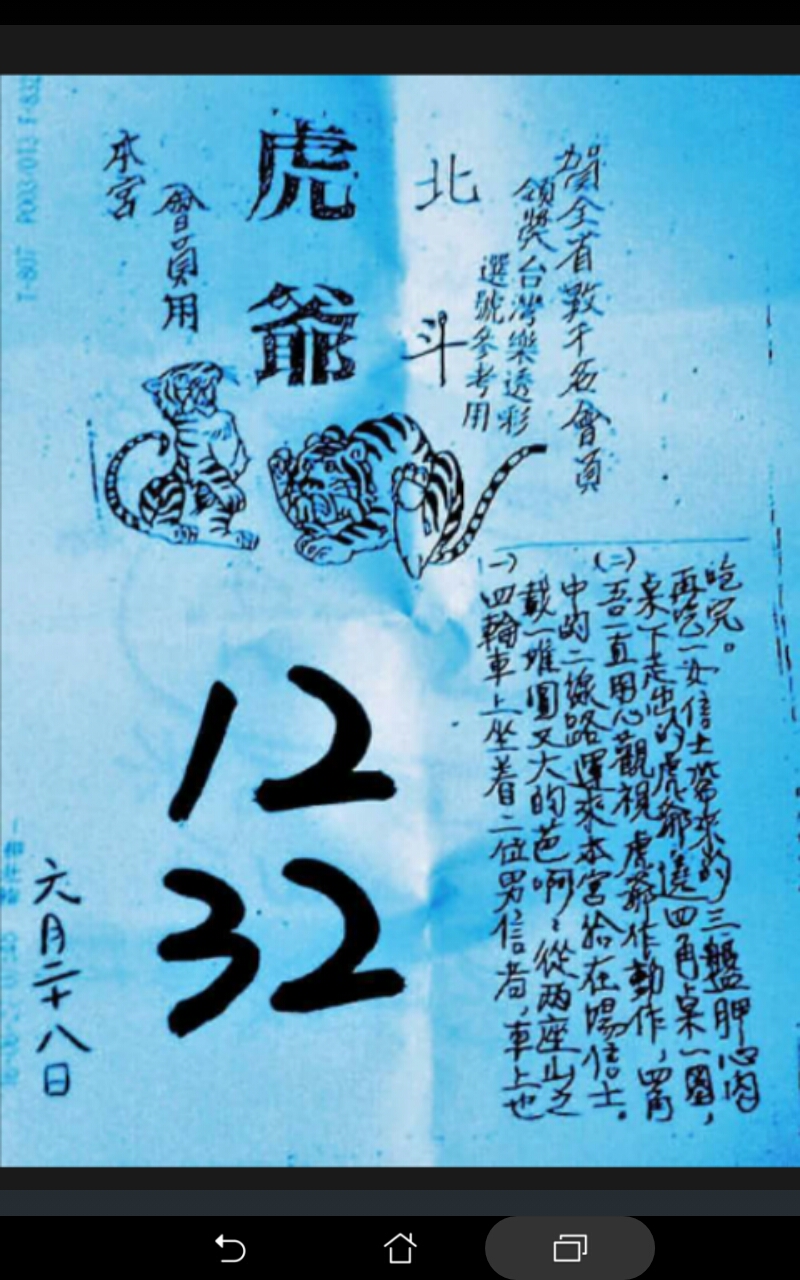 賀全省數千名會員
領獎台灣樂透彩
選號參考用
北斗
虎爺
會員用
本宮
(一)四輪車上坐着二位男信者,車上也
載一堆圓又大的芭啊:從兩座山之
中的二線路運來本宮給在場信士。
(二)吾一直用心觀視虎爺作動作,四角
桌下走出的虎爺遶四角桌一圈,
再吃一女信士帶來的三盤胛心肉
吃完。
12
32
六月二十八日
T-807 P003/013 F-832